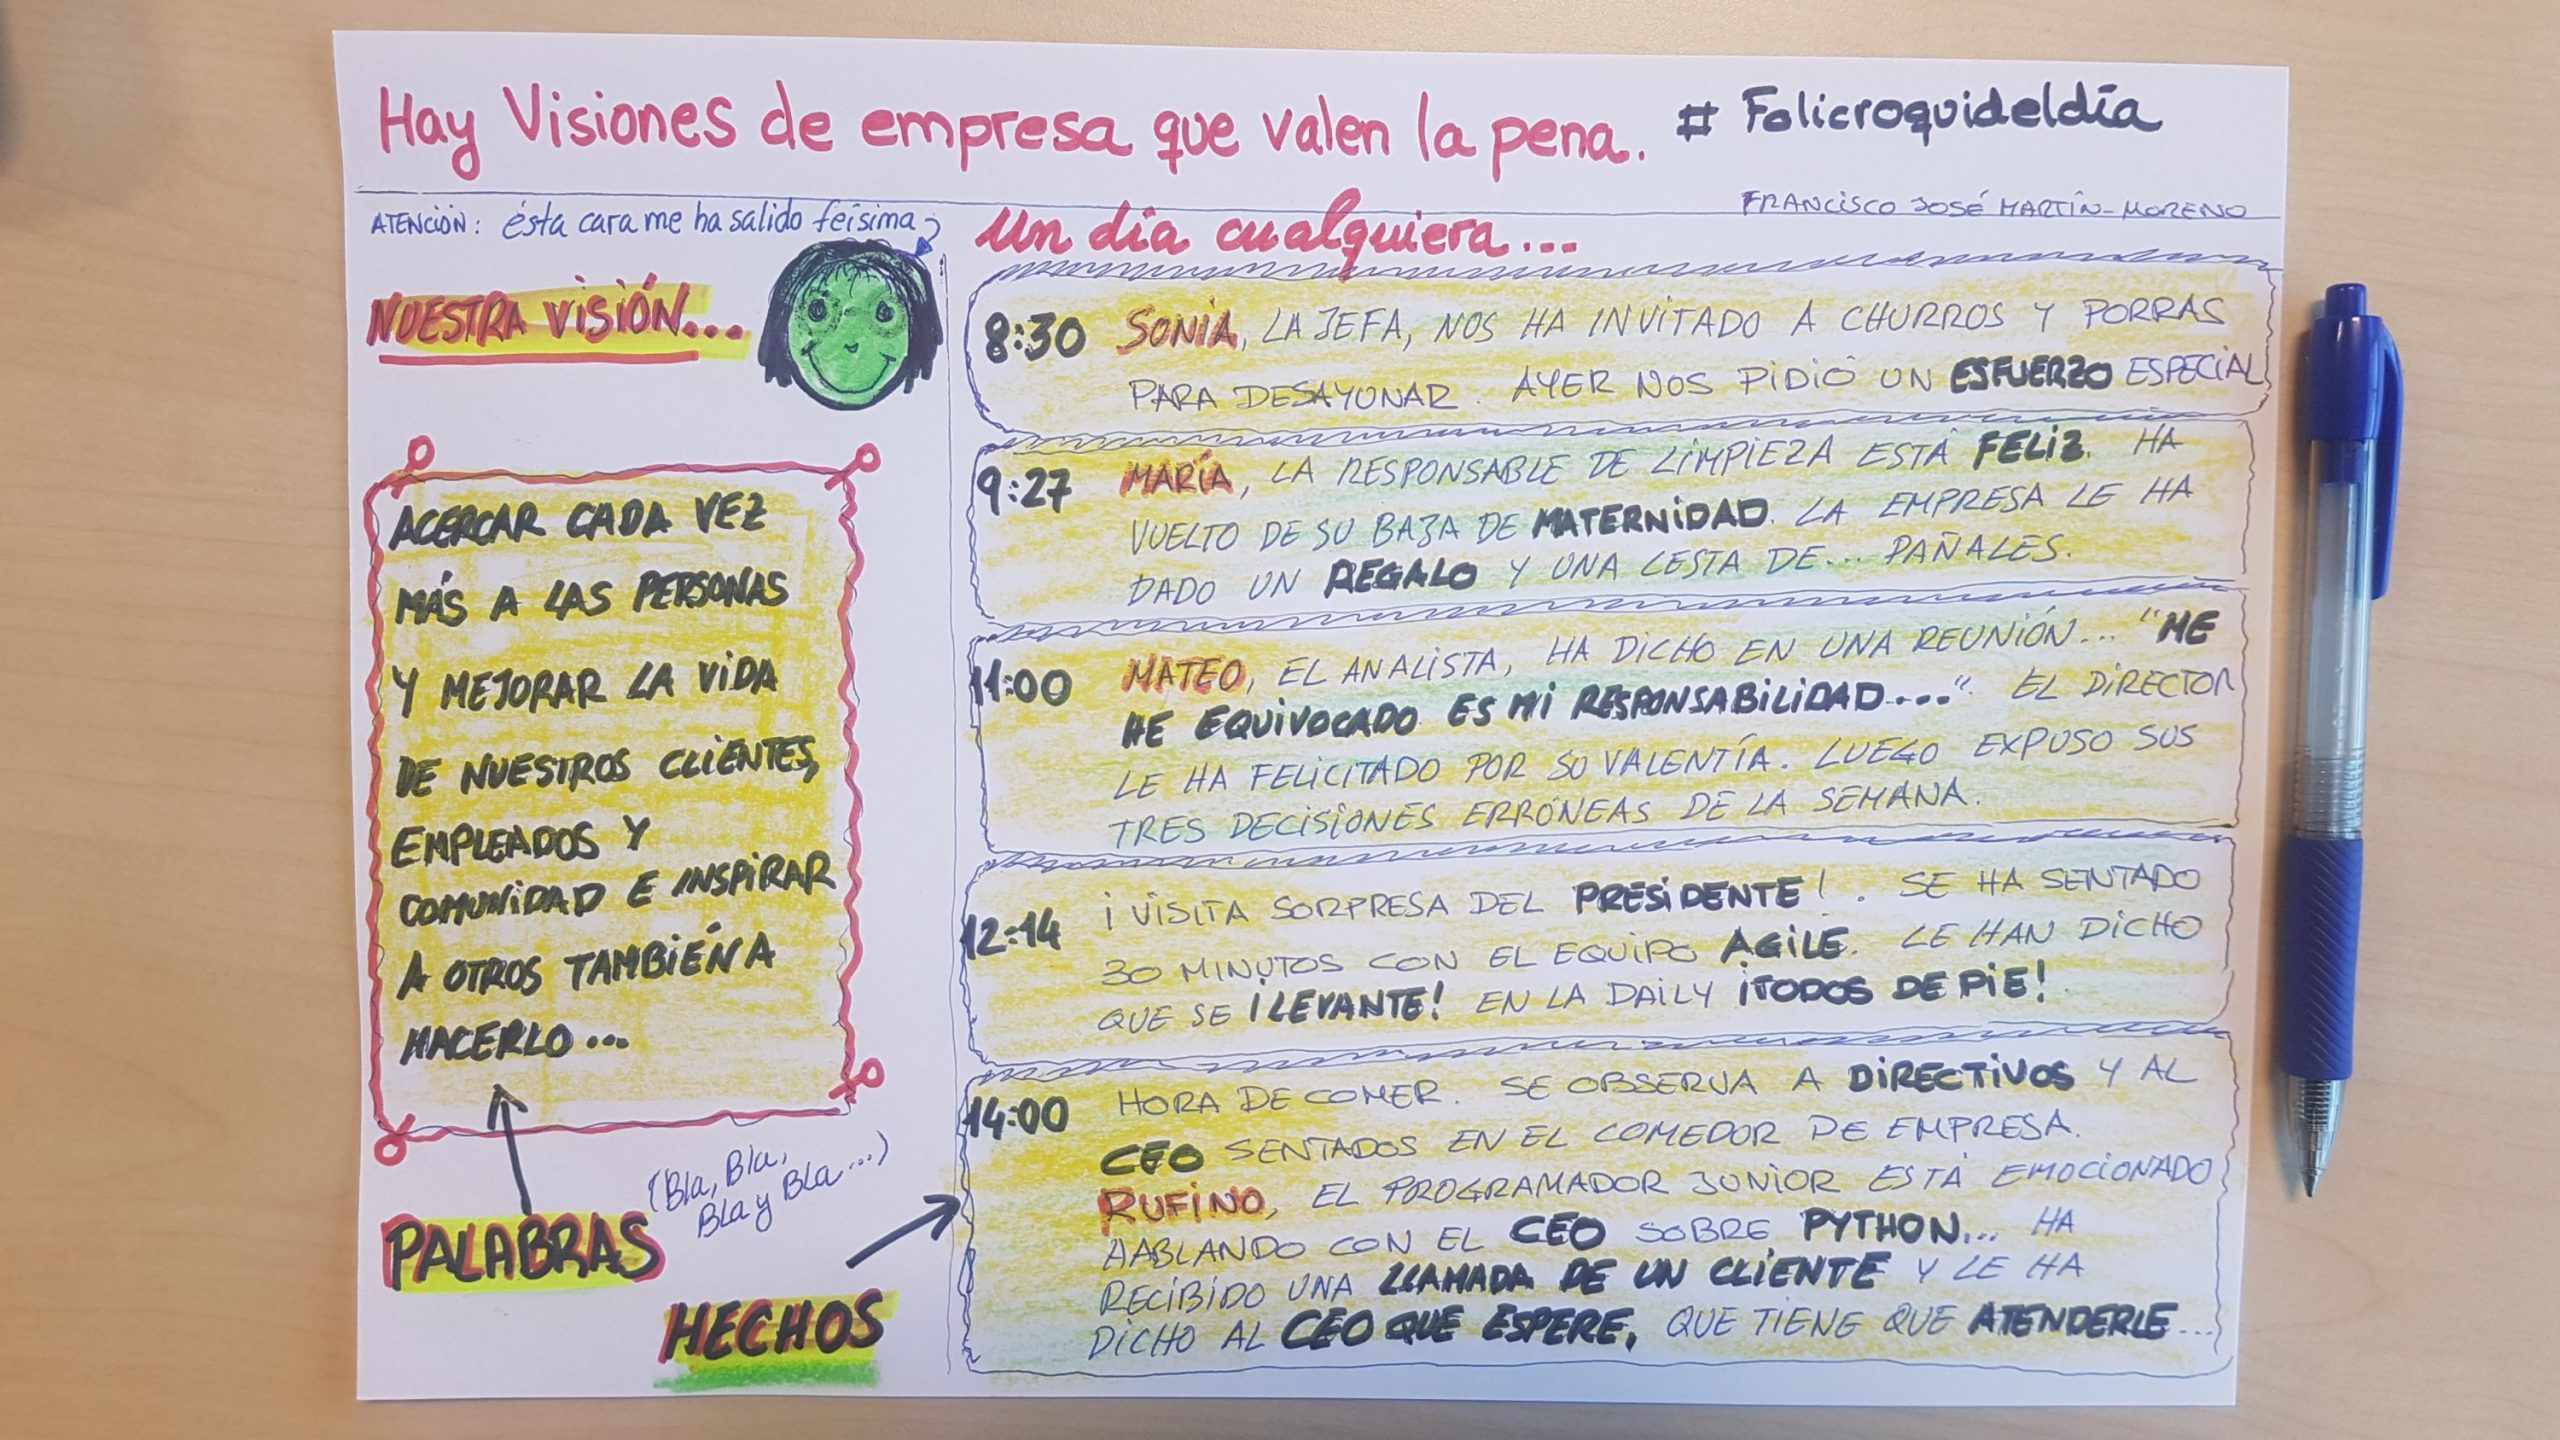 Hay Visiones de empresa que valen la pena. # Folicroquideldía
FRANCISCO JOSÉ MARTÍN-MORENO
ATENCIÓN: ésta cara me ha salido feísima
NUESTRA VISIÓN...
ACERCAR CADA VEZ
MÁS A LAS PERSONAS
Y MEJORAR LA VIDA
DE NUESTROS CLIENTES,
EMPLEADOS Y
COMUNIDAD E INSPIRAR
A OTROS TAMBIÉN A
HACERLO...
PALABRAS
(Bla, Bla,
Bla y Bla...)
HECHOS
Un día cualquiera...
8:30 SONIA, LA JEFA, NOS HA INVITADO A CHURROS Y PORRAS
PARA DESAYUNAR. AYER NOS PIDIÓ UN ESFUERZO ESPECIAL
9:27 MARÍA, LA RESPONSABLE DE LIMPIEZA ESTÁ FELIZ. HA
VUELTO DE SU BAJA DE MATERNIDAD. LA EMPRESA LE HA
DADO UN REGALO Y UNA CESTA DE... PAÑALES.
11:00 MATEO, EL ANALISTA, HA DICHO EN UNA REUNIÓN... "ME
HE EQUIVOCADO ES MI RESPONSABILIDAD....". EL DIRECTOR
LE HA FELICITADO POR SU VALENTÍA. LUEGO EXPUSO SUS
TRES DECISIONES ERRÓNEAS DE LA SEMANA.
12:14 ¡VISITA SORPRESA DEL PRESIDENTE!. SE HA SENTADO
30 MINUTOS CON EL EQUIPO AGILE. LE HAN DICHO
QUE SE ¡LEVANTE! EN LA DAILY ¡TODOS DE PIE!
14:00 HORA DE COMER. SE OBSERVA A DIRECTIVOS Y AL
CEO SENTADOS EN EL COMEDOR DE EMPRESA.
RUFINO, EL PROGRAMADOR JUNIOR ESTÁ EMOCIONADO
HABLANDO CON EL CEO SOBRE PYTHON... HA
RECIBIDO UNA LLAMADA DE UN CLIENTE Y LE HA
DICHO AL CEO QUE ESPERE, QUE TIENE QUE ATENDERLE...